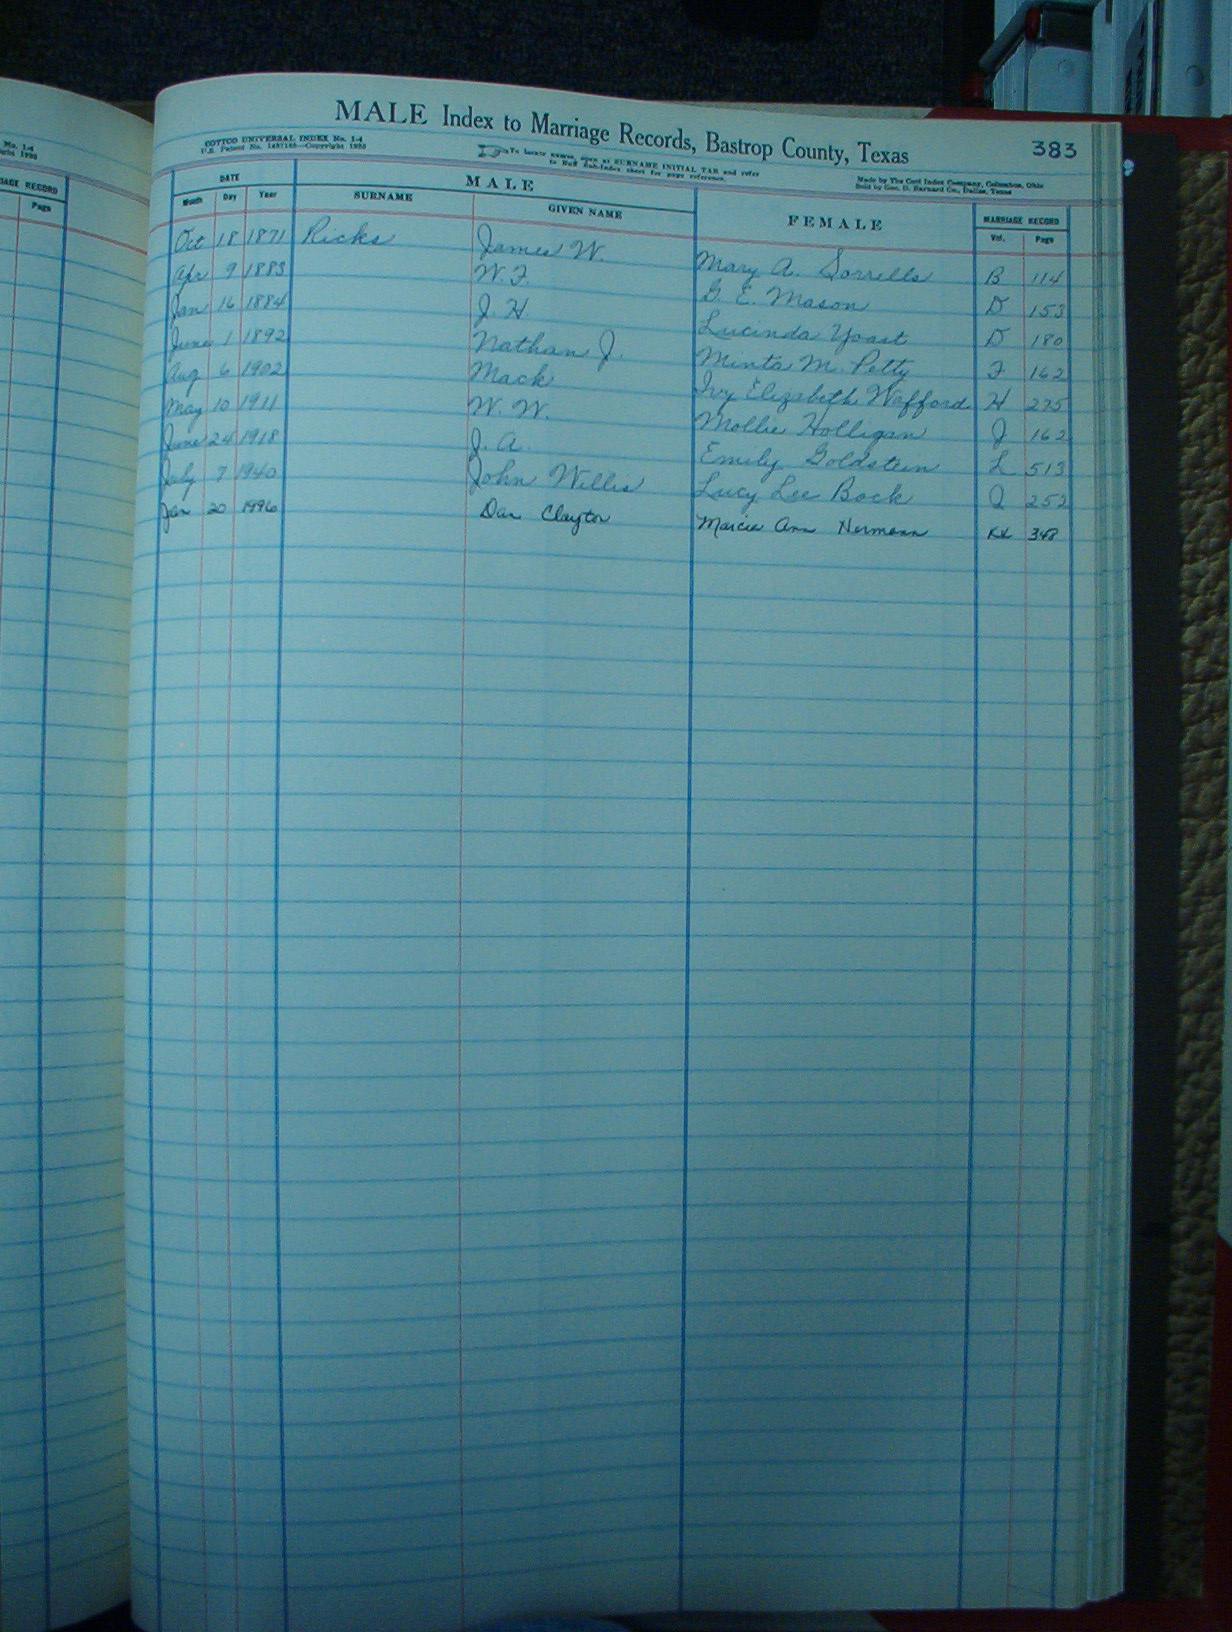 No. 1-4
MALE Index to Marriage Records, Bastrop County, Texas
383
COTTCO UNIVERSAL INDEX No. 1-4
U.S. Patent No. —Copyright 1930
To locate names, open at SURNAME INITIAL TAB and refer
to Sub-Index sheet for page reference.
Made by The Cott Index Company, Columbus, Ohio
Sold by Geo. D. Barnard Co., Dallas, Texas
RECORD
Page
DATE
MALE
FEMALE
MARRIAGE RECORD
Month Day Year SURNAME GIVEN NAME Vol. Page
Oct 18 1871 Ricks James W. Mary A. Sorrells B 114
Apr 9 1883 W. F. G. E. Mason D 153
Jan 16 1884 J. H Lucinda Yoast D 180
June 1 1892 Nathan J. Minta M. Petty F 162
Aug 6 1902 Mack Ivy Elizabeth Wafford H 275
May 10 1911 W. W. Mollie Holligan J 162
June 24 1918 J. A. Emily Goldstein L 513
July 7 1940 John Willis Lucy Lee Bock Q 252
Jan 20 1996 Dan Clayton Marcie Ann Nermann KK 348